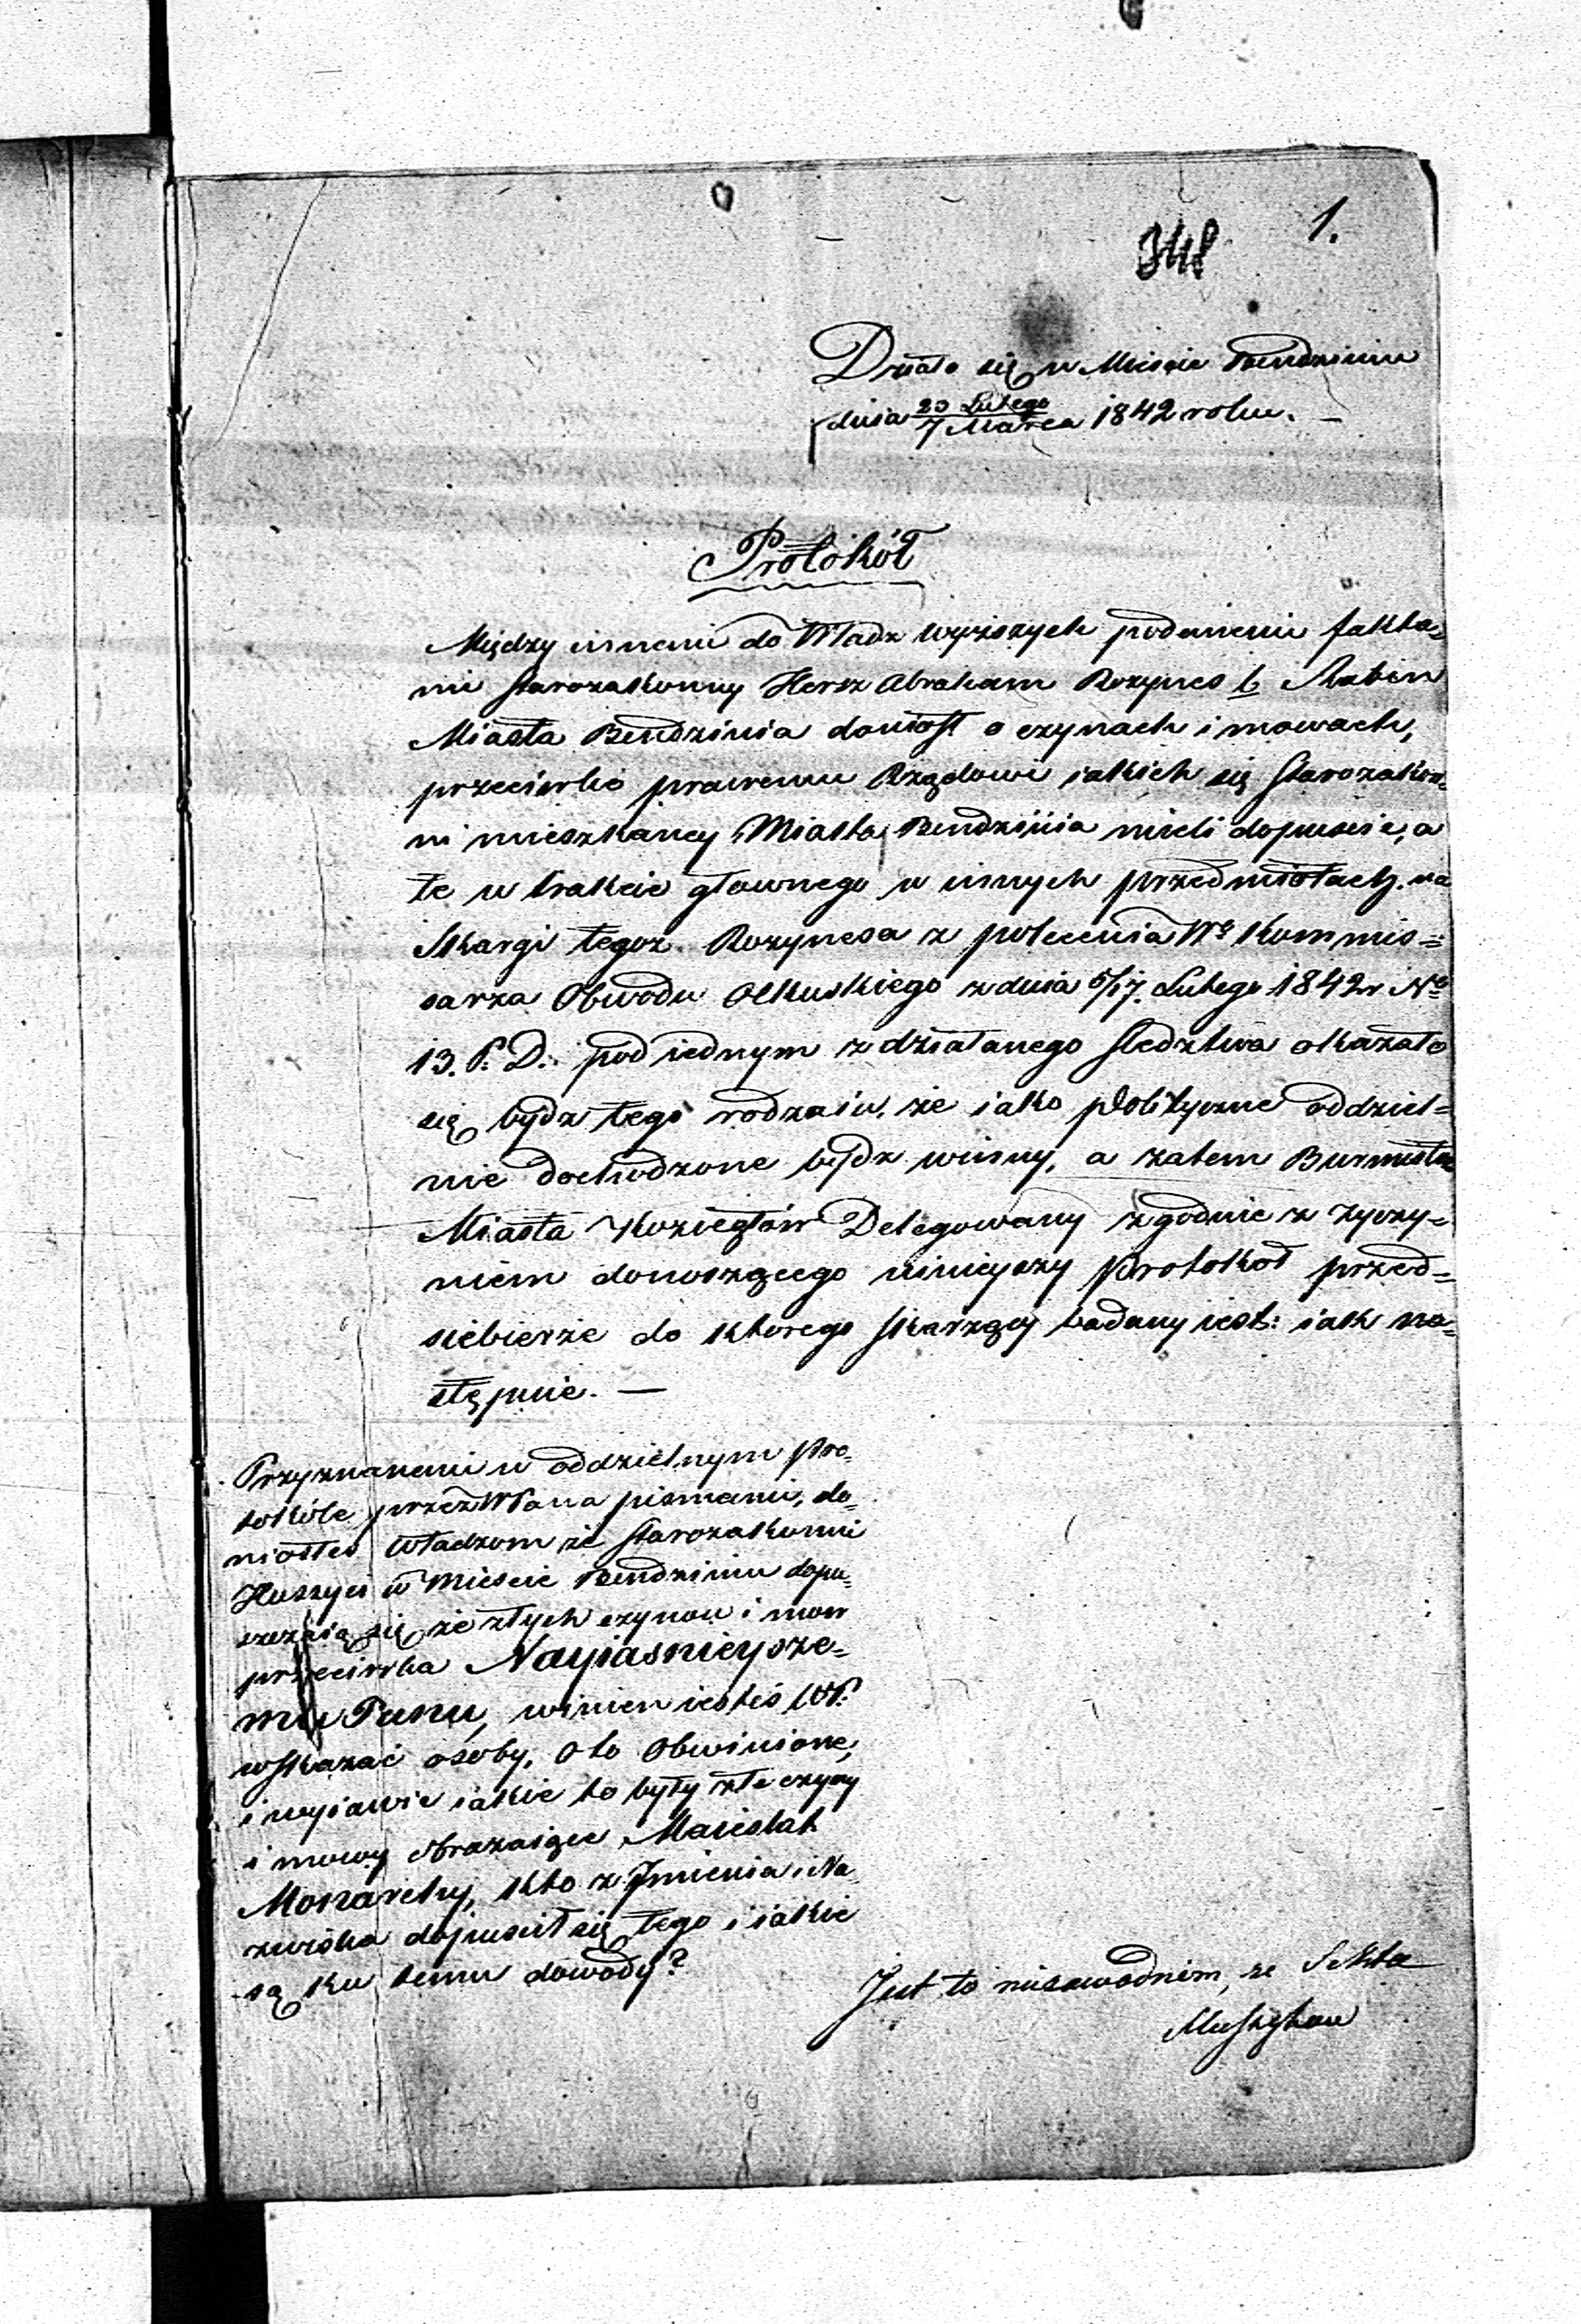 348 1.
Działo się w Mieście Bendzinie
dnia 23 Lutego / 7 Marca 1842 roku. —
Protokół
Między innemi do Władz wyższych podanemi fakta=
mi starozakonny Hersz Abraham Rozynes b Rabin
Miasta Bendzinia doniosł o czynach i mowach,
przeciwko prawemu Rządowi iakich się starozakon=
ni mieszkancy Miasta Bendzinia mieli dopuscić, a
te w trakcie głownego w innych przedmiotach na
skargi tegoż Rozynesa z polecenia Wo Kommis=
sarza Obwodu Olkuskiego z dnia 5/17. Lutego 1842 r No
13. P. D. pod iednym zdziałanego sledztwa okazało
się bydz tego rodzaiu, że iako polityczne oddziel=
nie dochodzone bydz winny, a zatem Burmistrz
Miasta Koziegłów Delegowany zgodnie z życzy=
niem donoszącego ninieyszy Protokoł przed=
siebierze do ktorego skarżący badany iest: iak na=
stępuie. —
Przyznanemi w oddzielnym Pro=
tokóle przez WPana pismami, do=
niosłeś Władzom że starozakonni
Hussyci w Miescie Bendzinie dopu=
szczaią się że złych czynow i mow
przeciwko Nayiasnieysze=
mu Panu, winien iesteś WP.
wskazać osoby, o to obwinione,
i wyiawić iakie to były złe czyny
i mowy obrażaiące Maiestat
Monarchy, kto z Imienia i Na
zwiska dopuscił się tego i iakie
są ku temu dowody?
Jest to niezawodnem, że Sekta